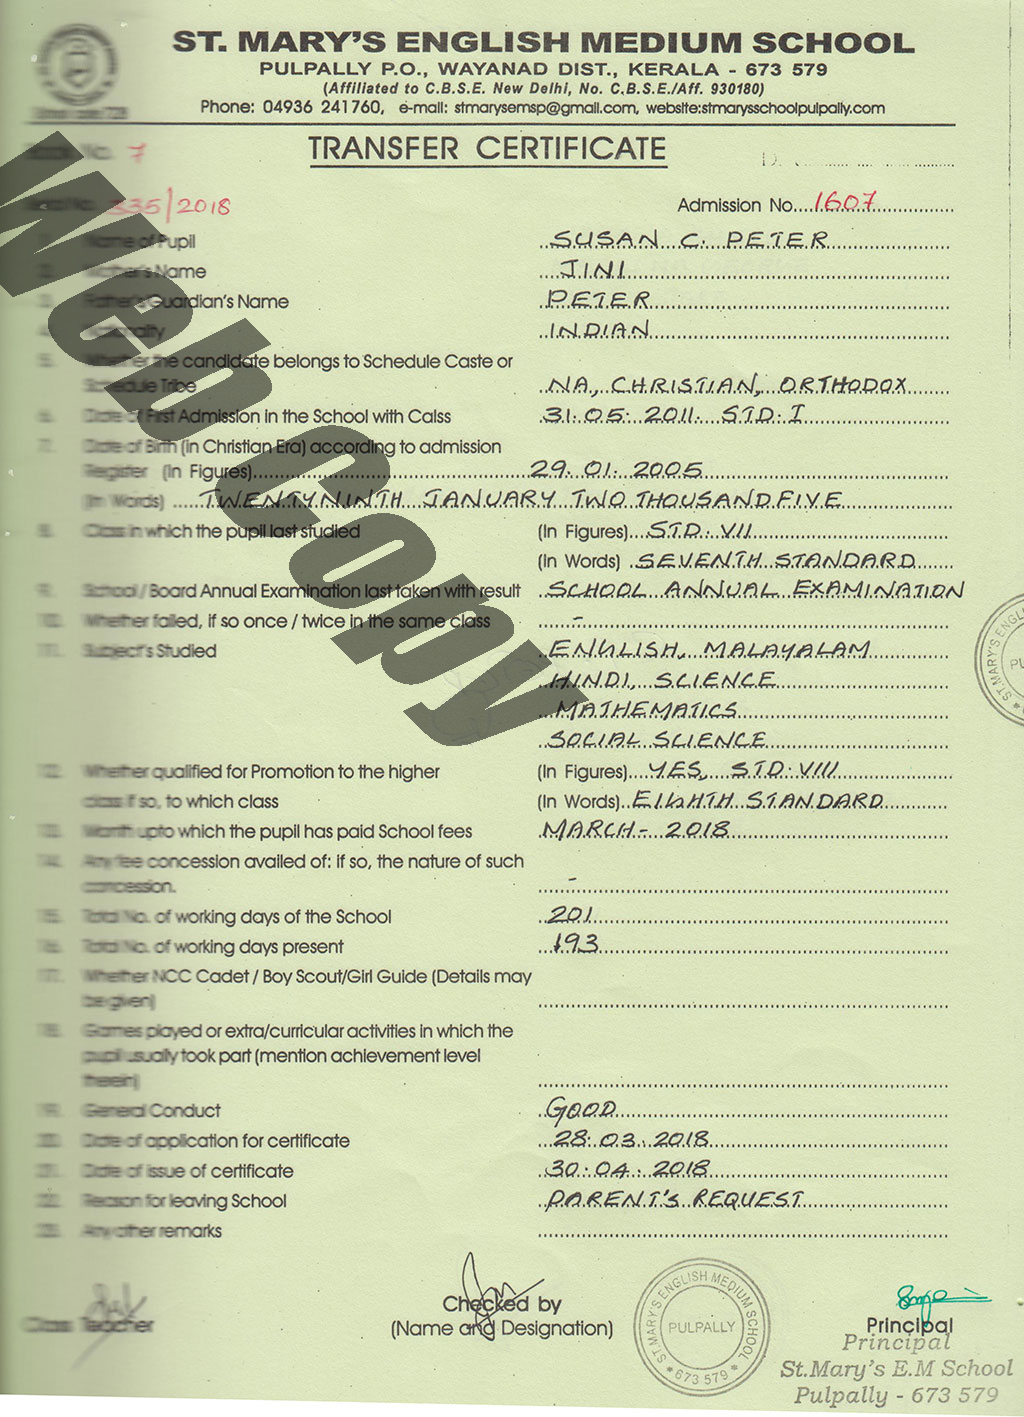 ST. MARY'S ENGLISH MEDIUM SCHOOL
PULPALLY P.O., WAYANAD DIST., KERALA - 673 579
(Affiliated to C.B.S.E. New Delhi, No. C.B.S.E./Aff. 930180)
Phone: 04936 241760, e-mail: stmarysemsp@gmail.com, website:stmarysschoolpulpally.com
TRANSFER CERTIFICATE
No. 7
335/2018 Admission No....1607
Name of Pupil SUSAN C. PETER
Mother's Name JINI
Father's/Guardian's Name PETER
Nationality INDIAN
5. Whether the candidate belongs to Schedule Caste or
Schedule Tribe NA, CHRISTIAN, ORTHODOX
6. Date of First Admission in the School with Calss 31.05.2011. STD. I
7. Date of Birth (in Christian Era) according to admission
Register (In Figures) 29.01.2005
(In Words) TWENTYNINTH JANUARY TWO THOUSAND FIVE
8. Class in which the pupil last studied (In Figures) STD. VII
(In Words) SEVENTH STANDARD
9. School / Board Annual Examination last taken with result SCHOOL ANNUAL EXAMINATION
10. Whether failed, if so once / twice in the same class -
11. Subject's Studied ENGLISH, MALAYALAM
HINDI, SCIENCE
MATHEMATICS
SOCIAL SCIENCE
12. Whether qualified for Promotion to the higher (In Figures) YES, STD. VIII
class if so, to which class (In Words) EIGHTH STANDARD
13. Month upto which the pupil has paid School fees MARCH - 2018
14. Any fee concession availed of: if so, the nature of such
concession. -
15. Total No. of working days of the School 201
16. Total No. of working days present 193
17. Whether NCC Cadet / Boy Scout/Girl Guide (Details may
be given)
18. Games played or extra/curricular activities in which the
pupil usually took part (mention achievement level
therein)
19. General Conduct GOOD
20. Date of application for certificate 28.03.2018
21. Date of issue of certificate 30.04.2018
22. Reason for leaving School PARENT'S REQUEST
23. Any other remarks
Class Teacher
Checked by
(Name and Designation)
Principal
Principal
St.Mary's E.M School
Pulpally - 673 579
ST.MARY'S ENGLISH MEDIUM SCHOOL
PULPALLY
* 673 579 *
ST.MARY'S ENGL
PU
Web Copy